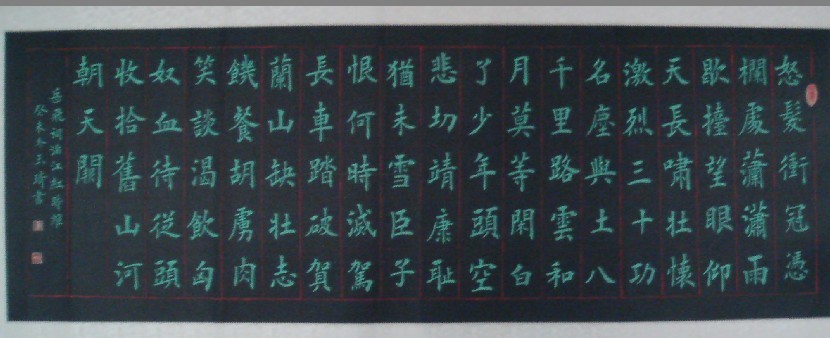 怒髮衝冠憑
欄處瀟瀟雨
歇擡望眼仰
天長嘯壯懷
激烈三十功
名塵與土八
千里路雲和
月莫等閑白
了少年頭空
悲切靖康恥
猶未雪臣子
恨何時滅駕
長車踏破賀
蘭山缺壯志
饑餐胡虜肉
笑談渴飲匈
奴血待從頭
收拾舊山河
朝天闕
岳飛詞滿江紅時維
癸未冬王琦書